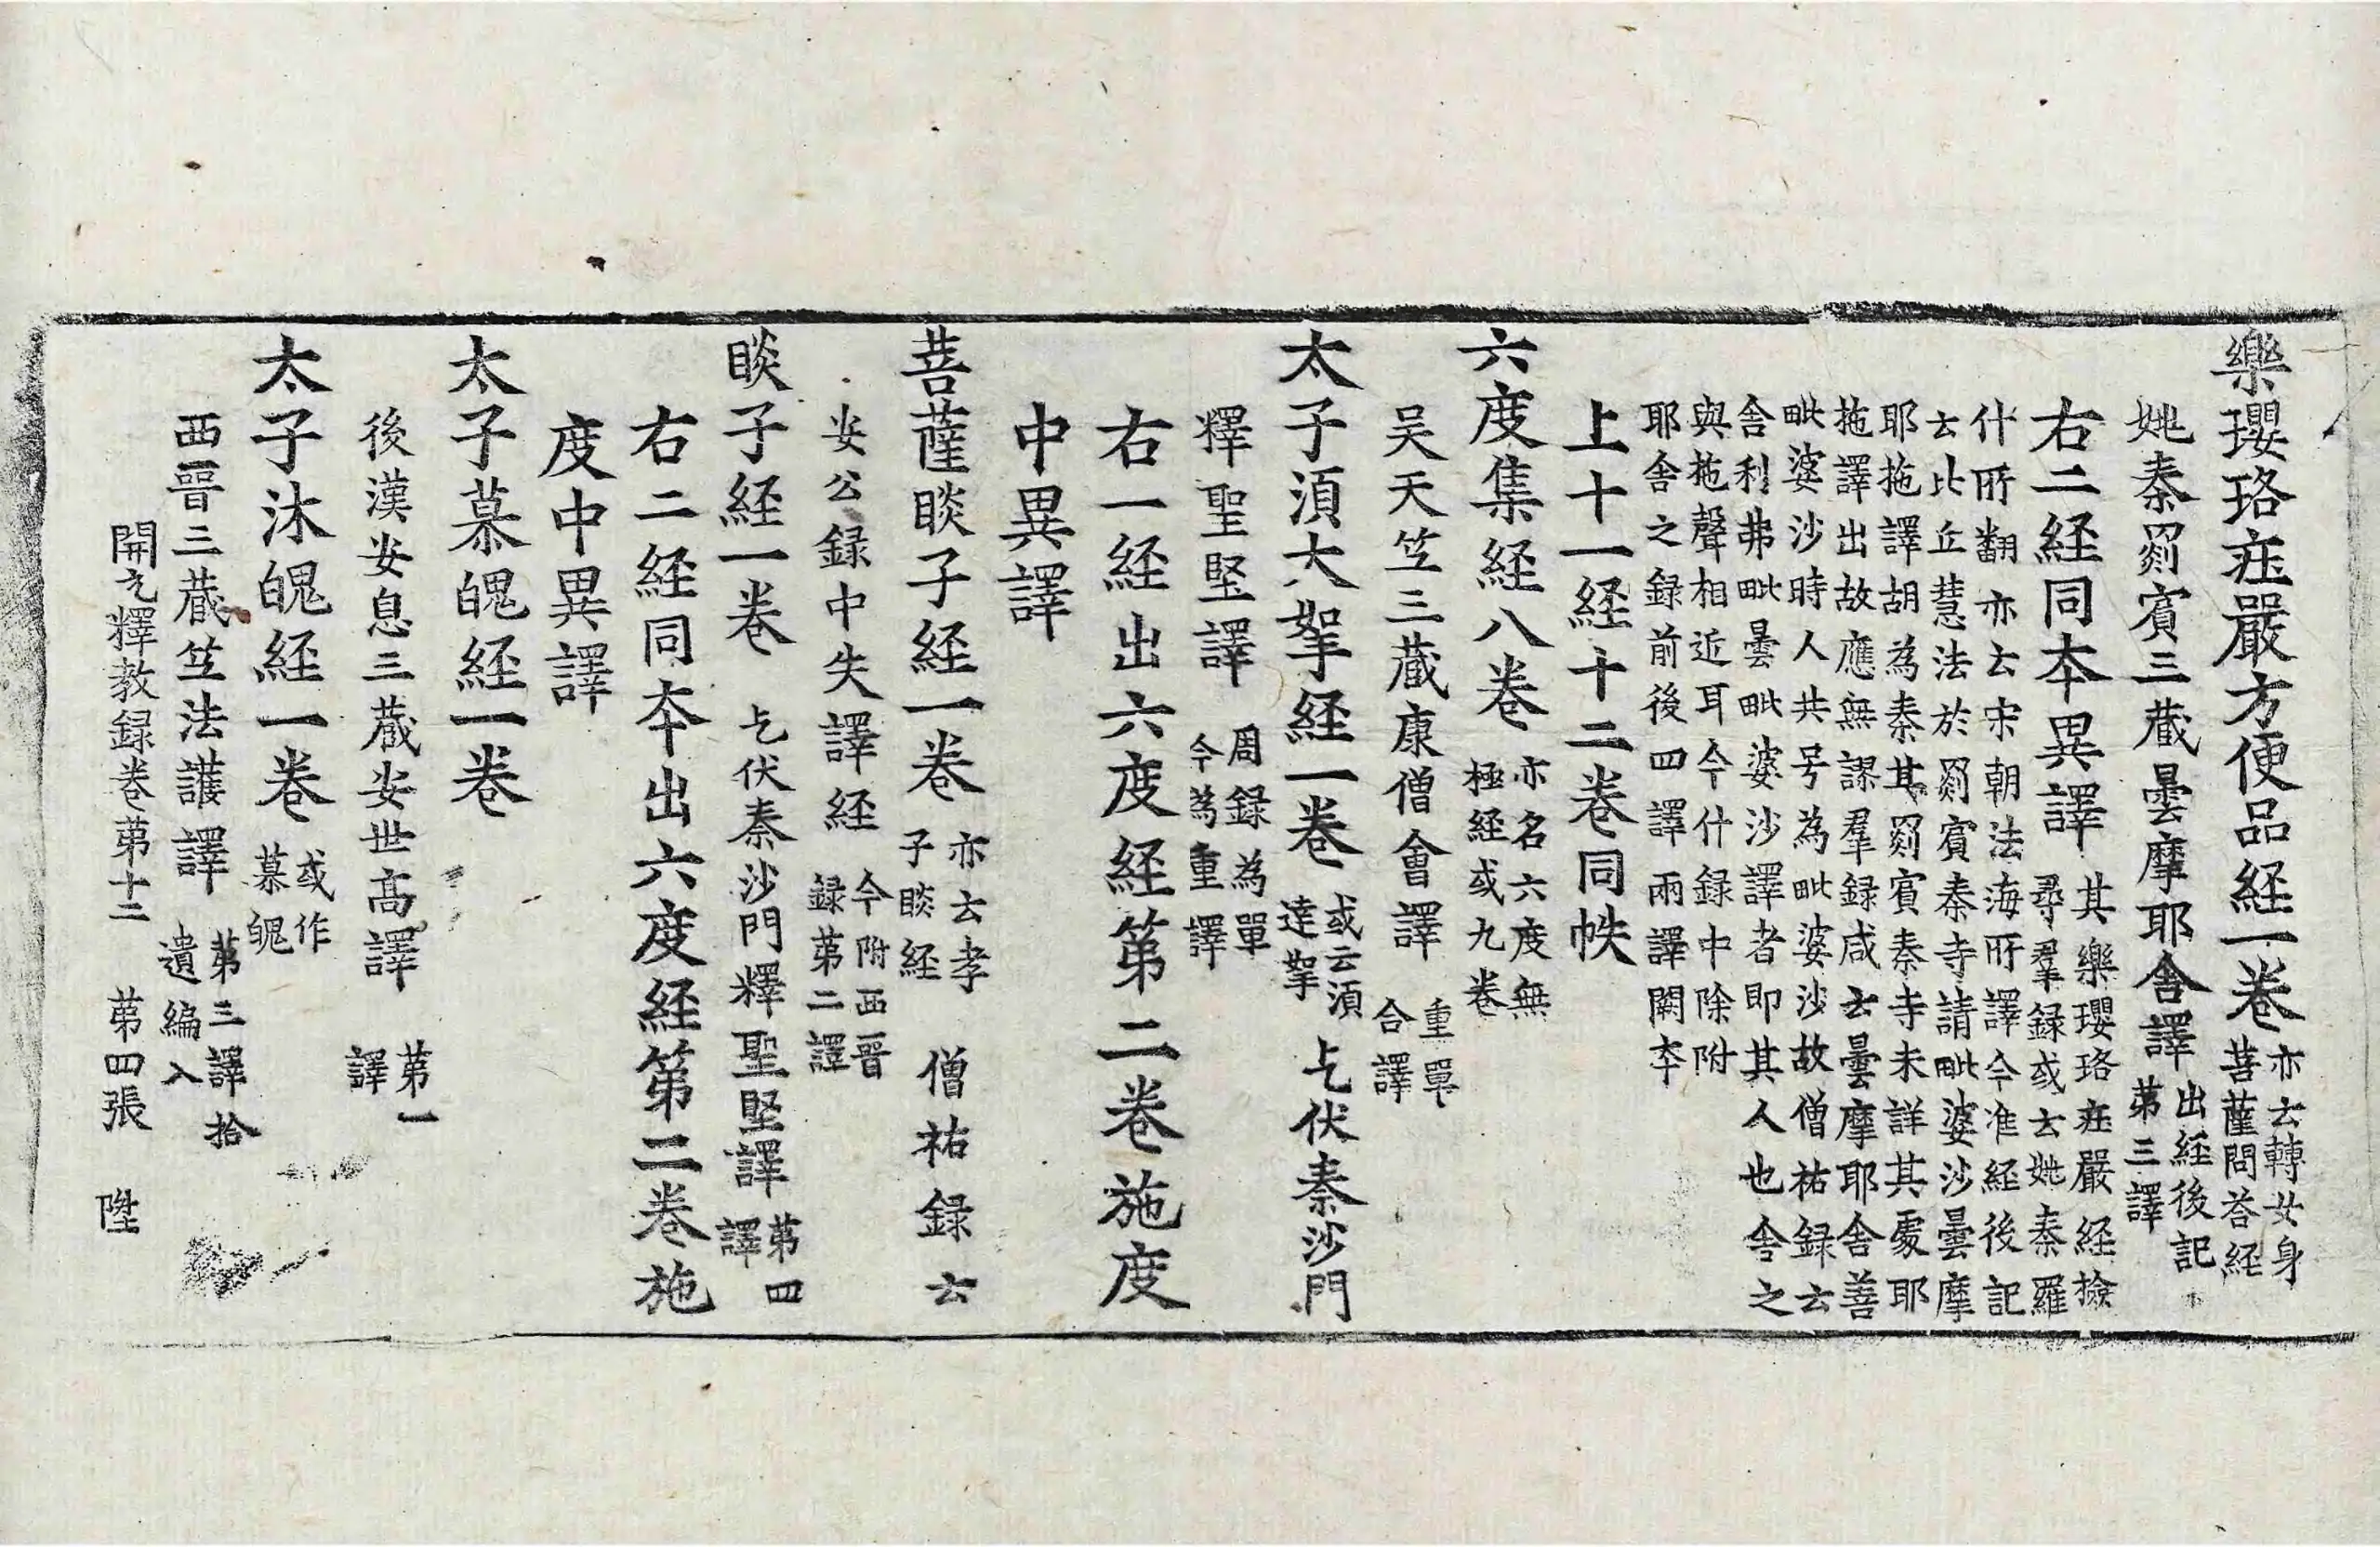 樂瓔珞莊嚴方便品経一卷亦云轉女身菩薩問荅経
姚秦罽賓三藏曇摩耶舍譯出経後記第三譯
右二経同夲異譯其樂瓔珞莊嚴経撿尋羣録或云姚秦羅
什所翻亦云宋朝法海所譯今准経後記
云比丘慧法於罽賓秦寺請毗婆沙曇摩
耶拖譯胡為秦其罽賓秦寺未詳其處耶
拖譯出故應無謬羣録咸云曇摩耶舍善
毗婆沙時人共号為毗婆沙故僧祐録云
舍利弗毗曇毗婆沙譯者即其人也舍之
與拖聲相近耳今什録中除附
耶舍之録前後四譯兩譯闕夲
上十一経十二卷同帙
六度集経八卷亦名六度無極経或九卷
吴天笁三藏康僧會譯重單合譯
太子湏大拏経一卷或云湏達拏乞伏秦沙門
釋聖堅譯周録為單今為重譯
右一経出六度経第二卷施度
中異譯
菩薩睒子経一卷亦云孝子睒経僧祐録云
安公録中失譯経今附西晋録第二譯
睒子経一卷乞伏秦沙門釋聖堅譯第四譯
右二経同夲出六度経第二卷施
度中異譯
太子慕魄経一卷
後漢安息三藏安世高譯第一譯
太子沐魄経一卷或作慕魄
西晋三藏笁法護譯第三譯拾遺編入
開元釋教録卷第十二　第四張　陞